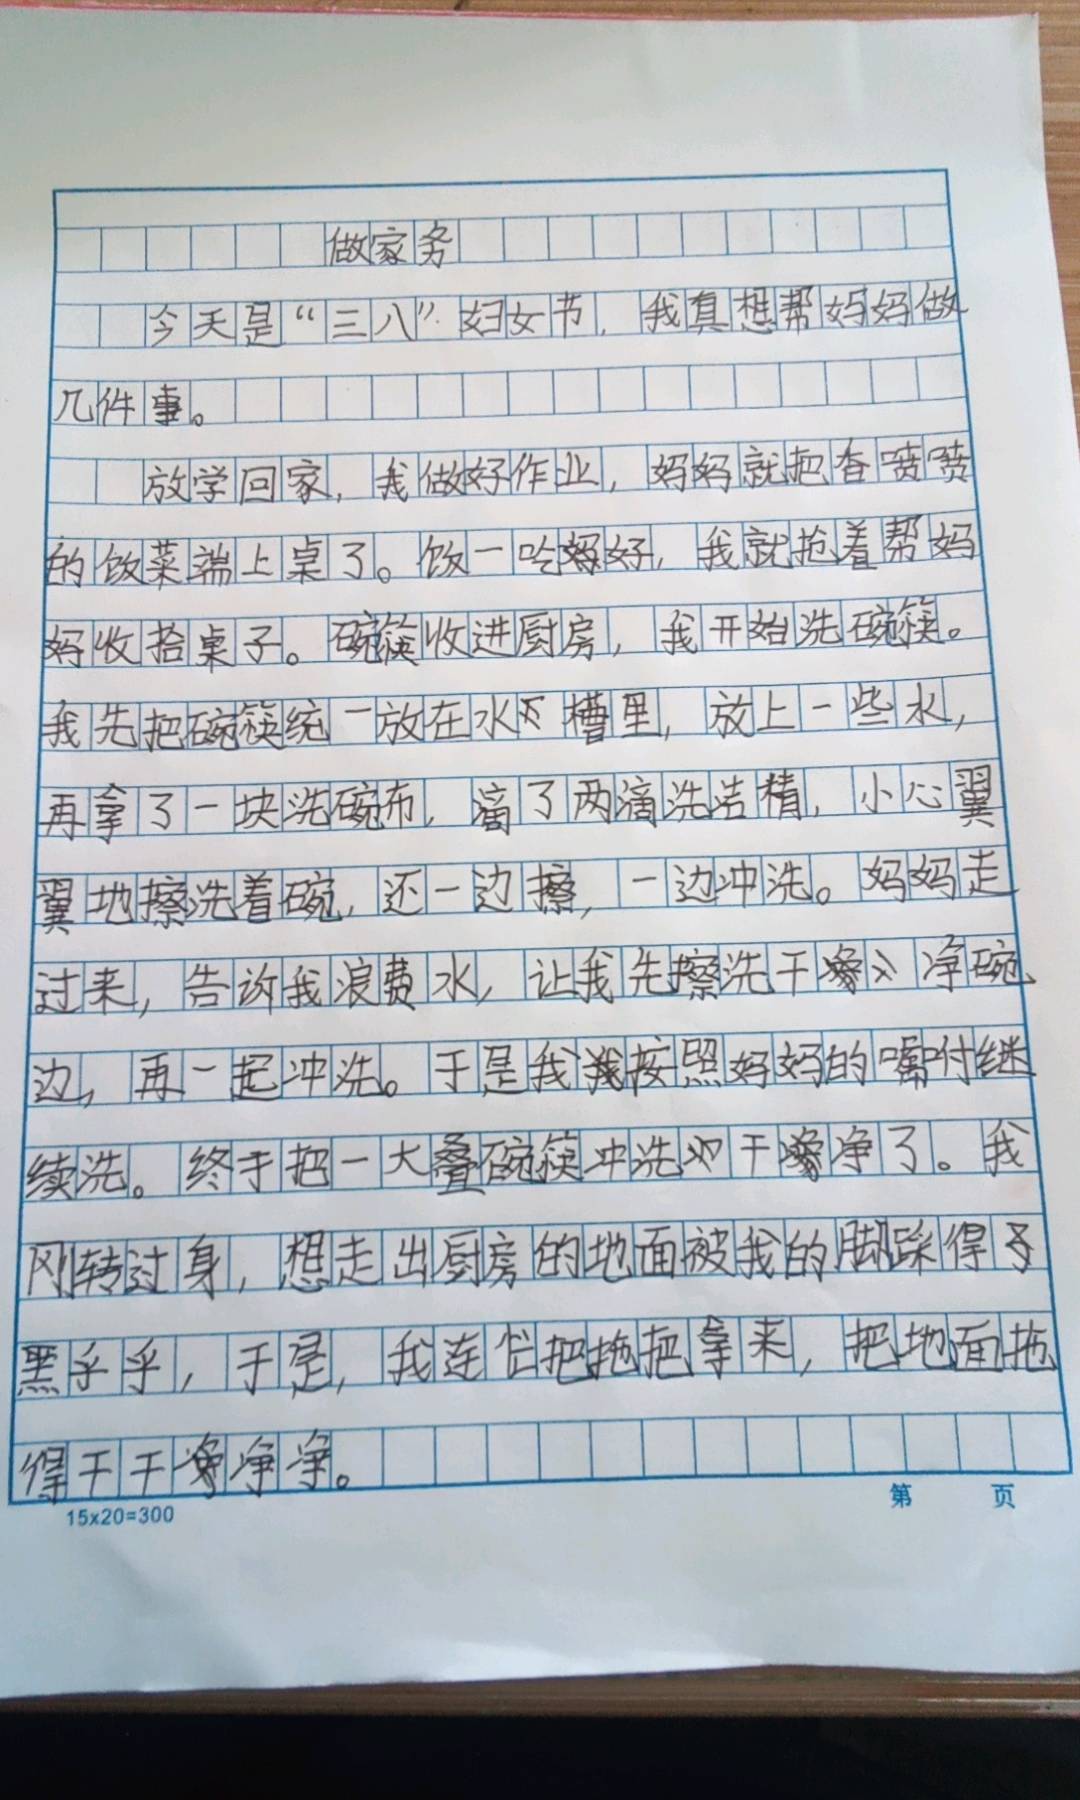 做家务
今天是“三八”妇女节，我真想帮妈妈做
几件事。
放学回家，我做好作业，妈妈就把香喷喷
的饭菜端上桌了。饭一吃好，我就抢着帮妈
妈收拾桌子。碗筷收进厨房，我开始洗碗筷。
我先把碗筷统一放在水槽里，放上一些水，
再拿了一块洗碗布，滴了两滴洗洁精，小心翼
翼地擦洗着碗，还一边擦，一边冲洗。妈妈走
过来，告诉我浪费水，让我先擦洗干净碗
边，再一起冲洗。于是我按照妈妈的嘱咐继
续洗。终于把一大叠碗筷冲洗干净了。我
刚转过身，想走出厨房的地面被我的脚踩得
黑乎乎，于是，我连忙把拖把拿来，把地面拖
得干干净净。
15x20=300
第 页